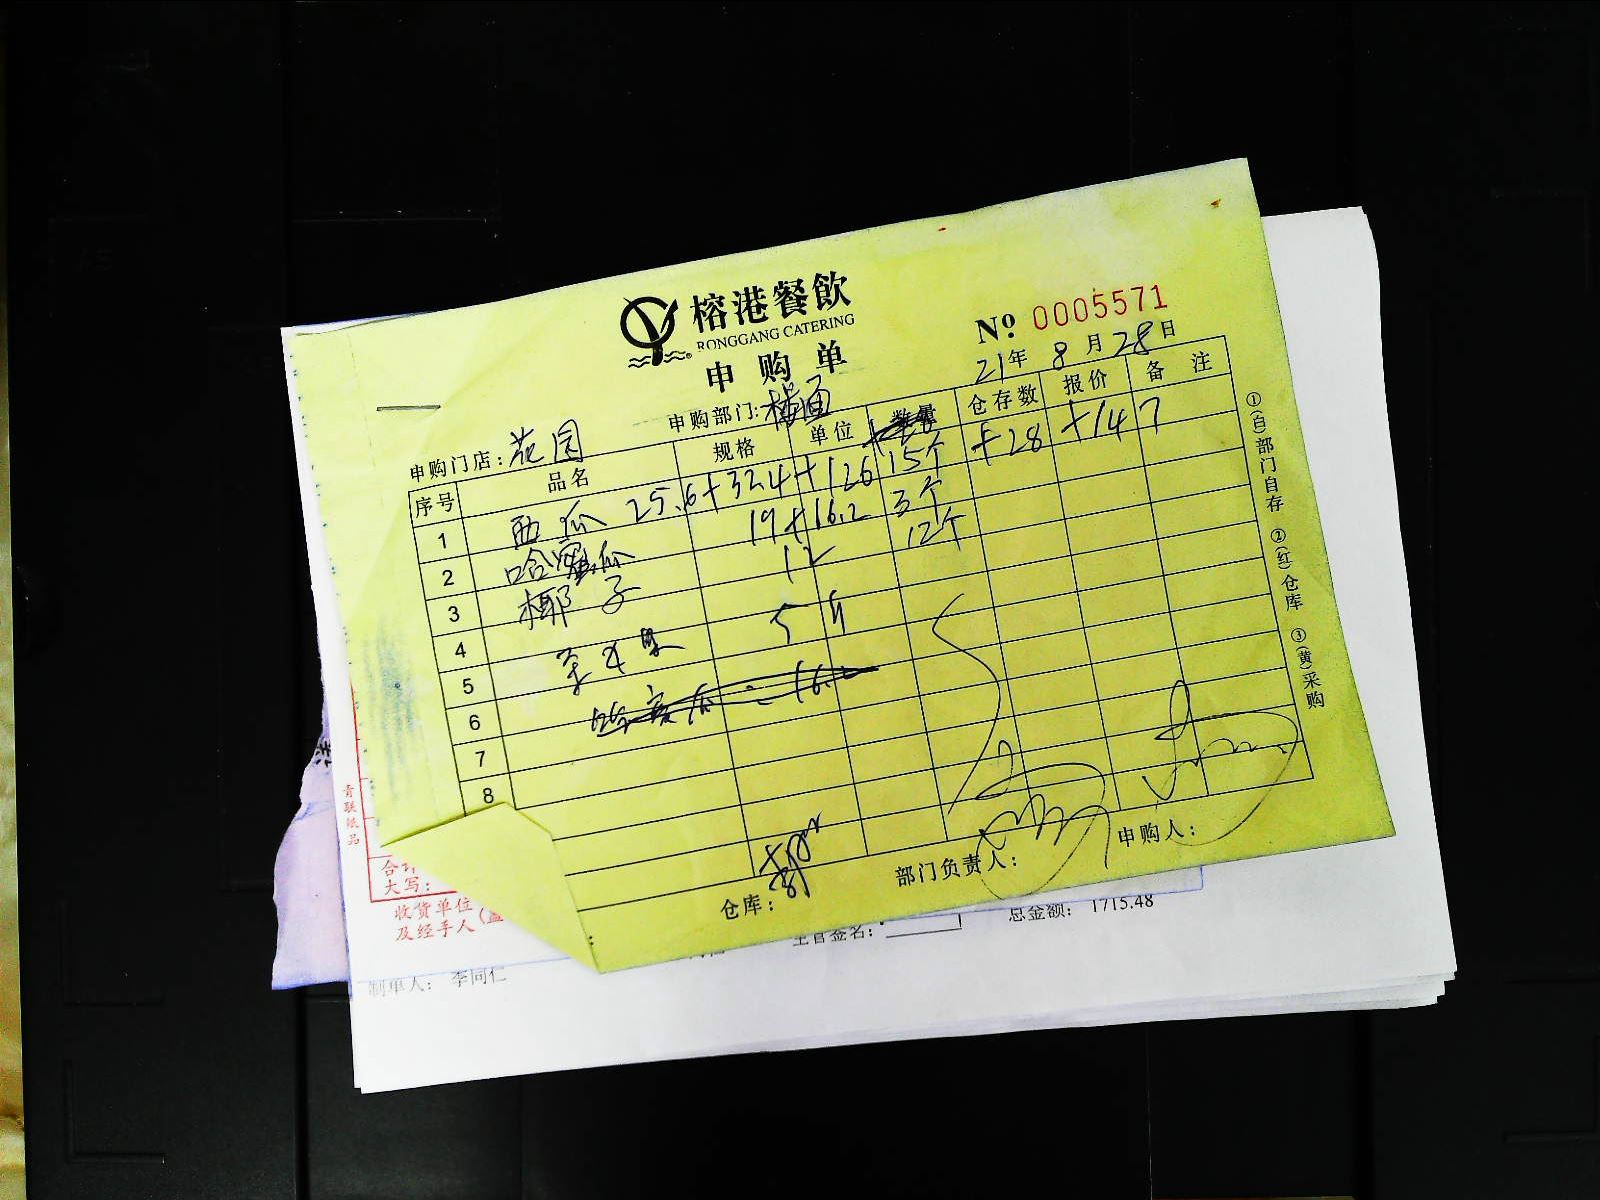 榕港餐飲
RONGGANG CATERING
申购单
№ 0005571
21年 8月 28日
申购门店：花园 申购部门：楼面
序号 品名 规格 单位 数量 仓存数 报价 备注
1 西瓜 25.6+32.4+126 15个 +28 +147
2 哈密瓜 19+16.2 3个
3 椰子 12 12个
4
5
6
7
8
仓库： 部门负责人： 申购人：
①(白)部门自存 ②(红)仓库 ③(黄)采购
青联纸品
大写：
收货单位
及经手人(盖
主管签名： 总金额： 1715.48
制单人： 李同仁